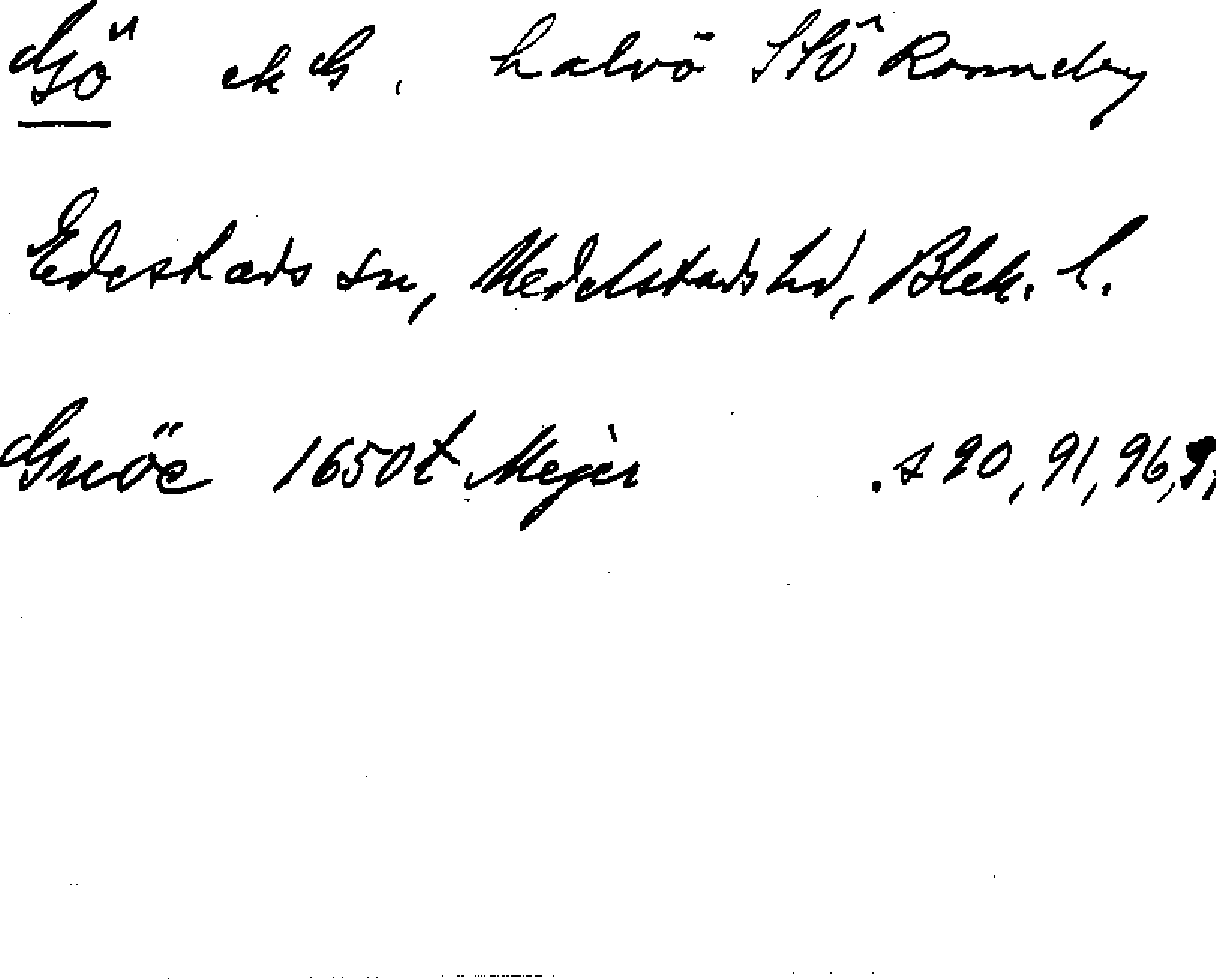 Gö ek G, halvö SSÖ Ronneby
Edestads sn, Medelstads hd, Blek. l.
Gnöe 1650t Mejer . s 90, 91, 96,